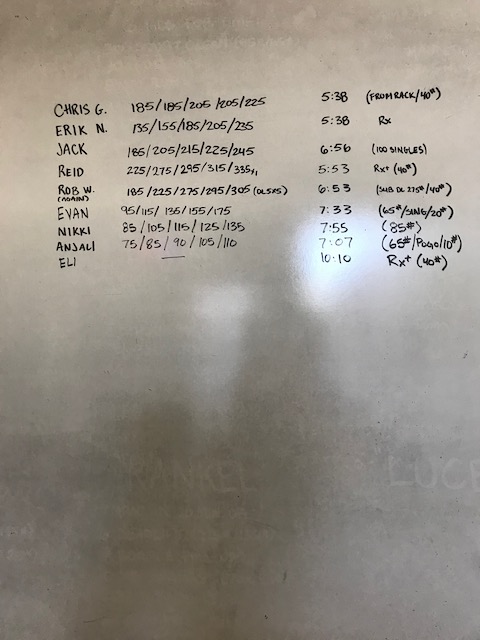 CHRIS G. 185/185/205/205/225 5:38 (FROM RACK/40#)
ERIK N. 135/155/185/205/235 5:38 Rx
JACK 185/205/215/225/245 6:56 (100 SINGLES)
REID 225/275/295/315/335 5:53 Rx+ (40#)
ROB W. 185/225/275/295/305 (DL5X5) 6:53 (SUB DL 275#/40#)
(AGAIN)
EVAN 95/115/135/155/175 7:33 (65#/SING/20#)
NIKKI 85/105/115/125/135 7:55 (85#)
ANJALI 75/85/90/105/110 7:07 (65#/POGO/10#)
ELI 10:10 Rx+ (40#)
RANKEL LUCE